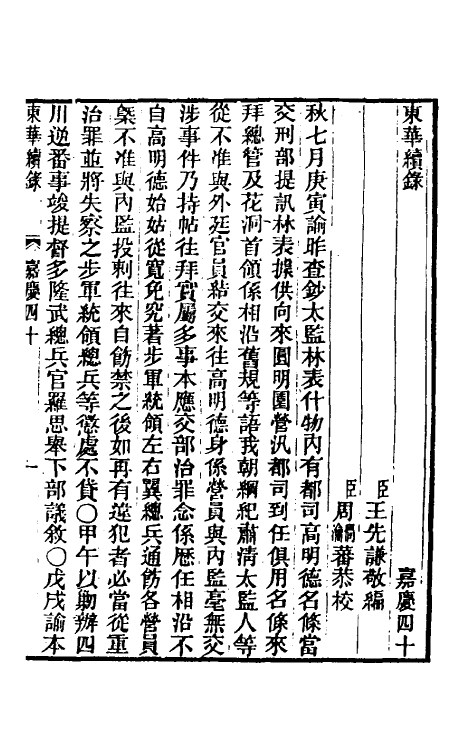 東華續錄　嘉慶四十
臣王先謙敬編
臣周潤蕃周瀹蕃恭校
秋七月庚寅諭昨查鈔太監林表什物內有都司高明德名條當
交刑部提訊林表據供向來圓明園營汛都司到任俱用名條來
拜總管及花洞首領係相沿舊規等語我朝綱紀肅清太監人等
從不准與外廷官員結交來往高明德身係營員與內監毫無交
涉事件乃持帖往拜實屬多事本應交部治罪念係歷任相沿不
自高明德始姑從寬免究著步軍統領左右翼總兵通飭各營員
槩不准與內監投刺往來自飭禁之後如再有違犯者必當從重
治罪並將失察之步軍統領總兵等懲處不貸○甲午以勦辦四
川逆番事竣提督多隆武總兵官羅思舉下部議敘○戊戌諭本
東華續錄　嘉慶四十　一